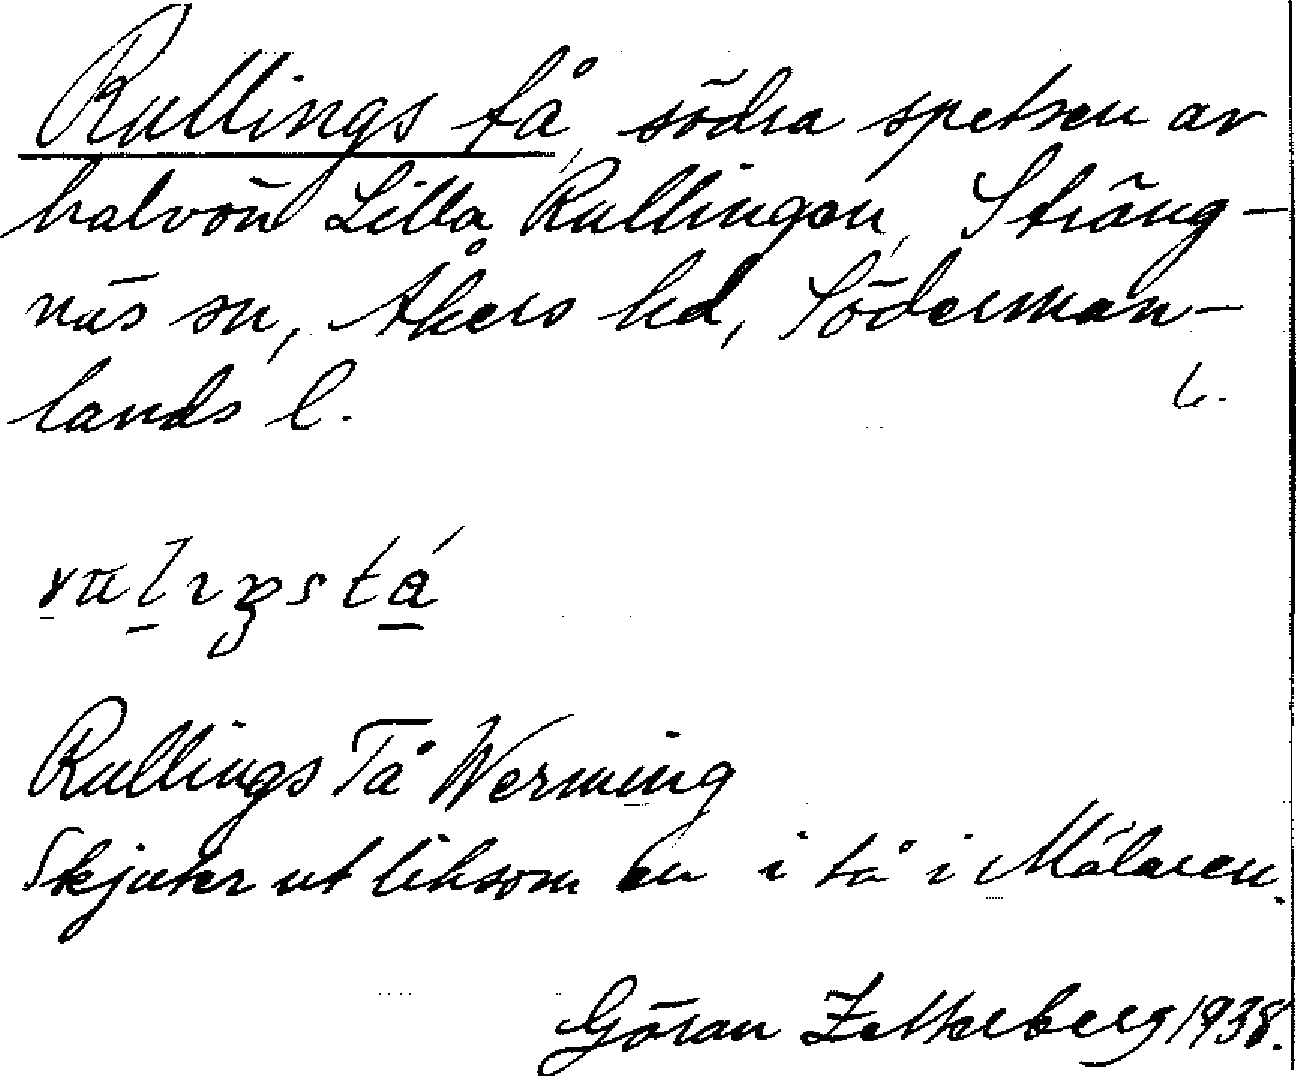 Rullings tå, södra spetsen av
halvön Lilla Rullingen, Sträng-
näs sn, Åkers hd, Söderman-
lands l.
Rullings Tå Werming
Skjuter ut liksom en i tå i Mälaren.
Göran Zetterberg 1938.